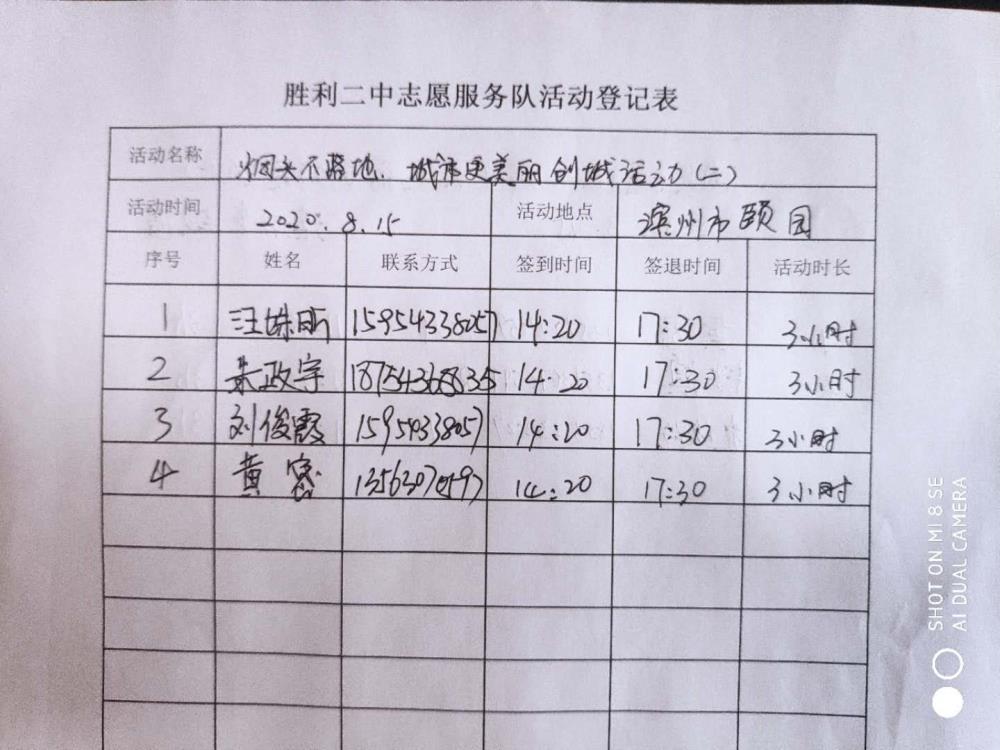 胜利二中志愿服务队活动登记表
活动名称 烟头不落地、城市更美丽创城活动(二)
活动时间 2020.8.15 活动地点 滨州市颐园
序号 姓名 联系方式 签到时间 签退时间 活动时长
1 15954338057 14:20 17:30 3小时
2 政宇 18754368835 14:20 17:30 3小时
3 刘俊霞 15954338057 14:20 17:30 3小时
4 黄 14:20 17:30 3小时
SHOT ON MI 8 SE
AI DUAL CAMERA